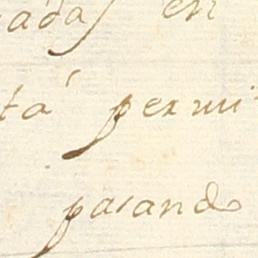 ada en
tá permi
pasand